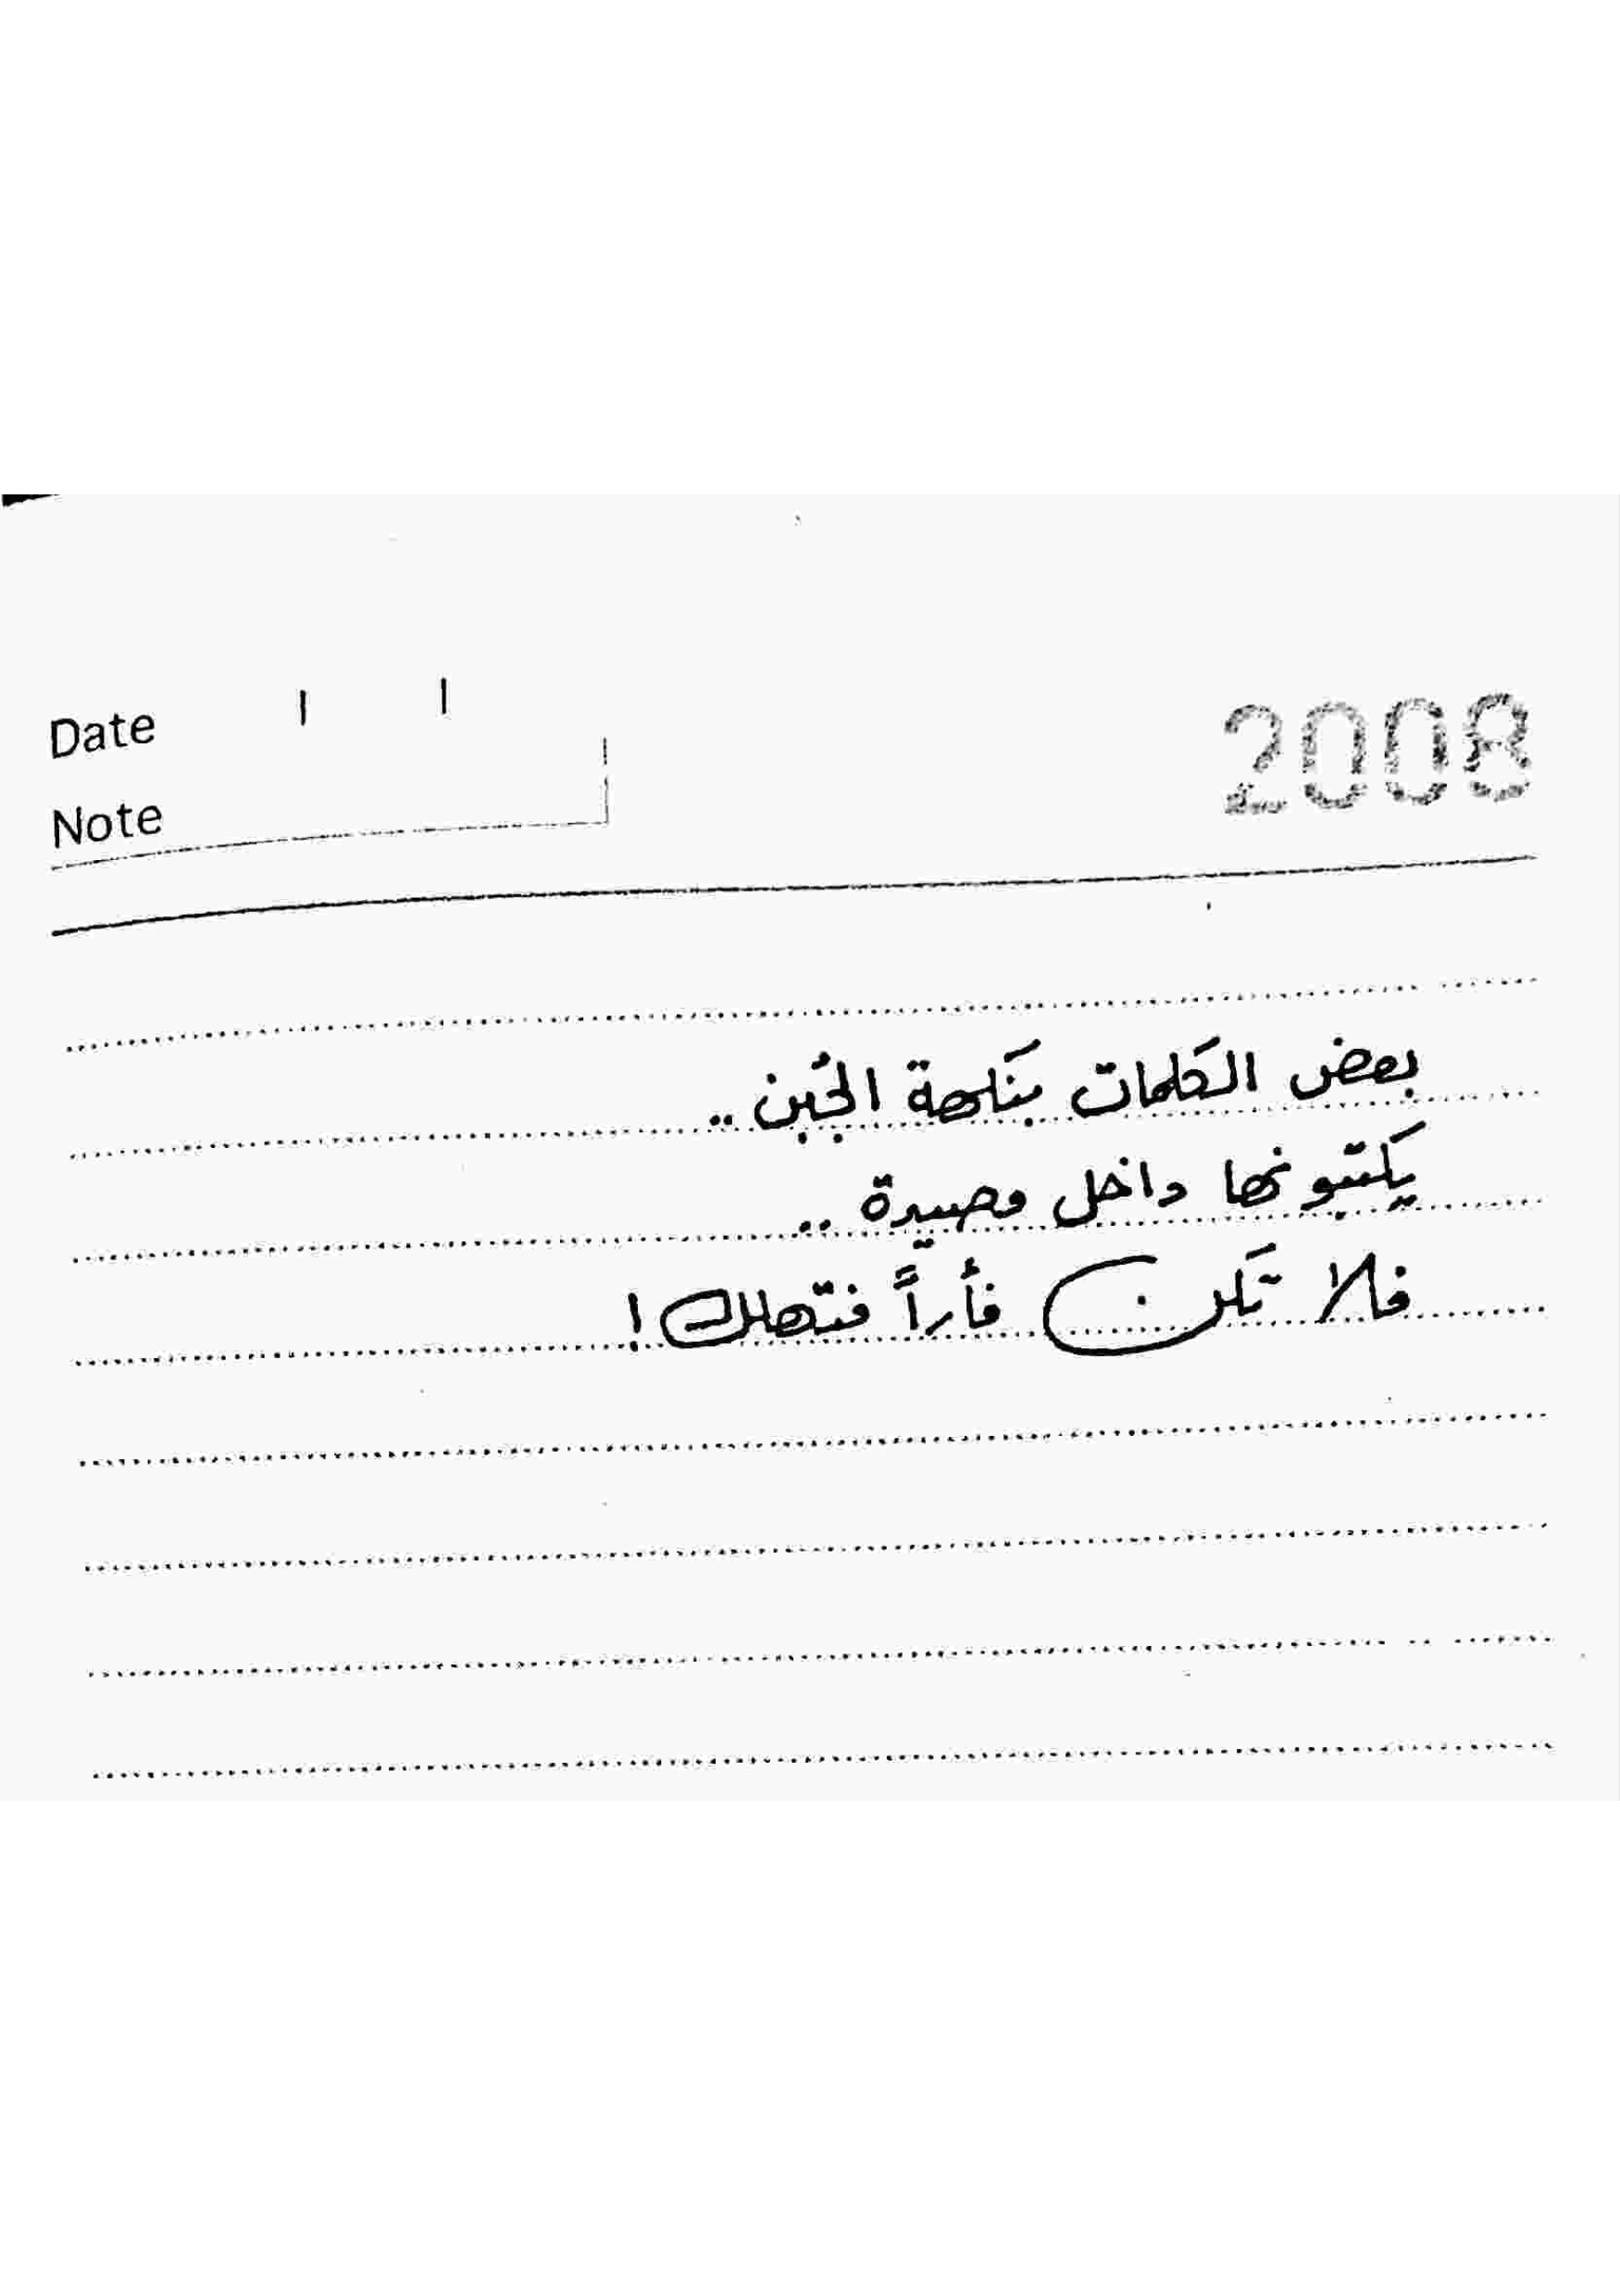 Date / /
2008
Note
بعض الكلمات بنكهة الجُبن ..
يكتبونها داخل مصيدة ..
فلا تكن فأراً فتهلك !